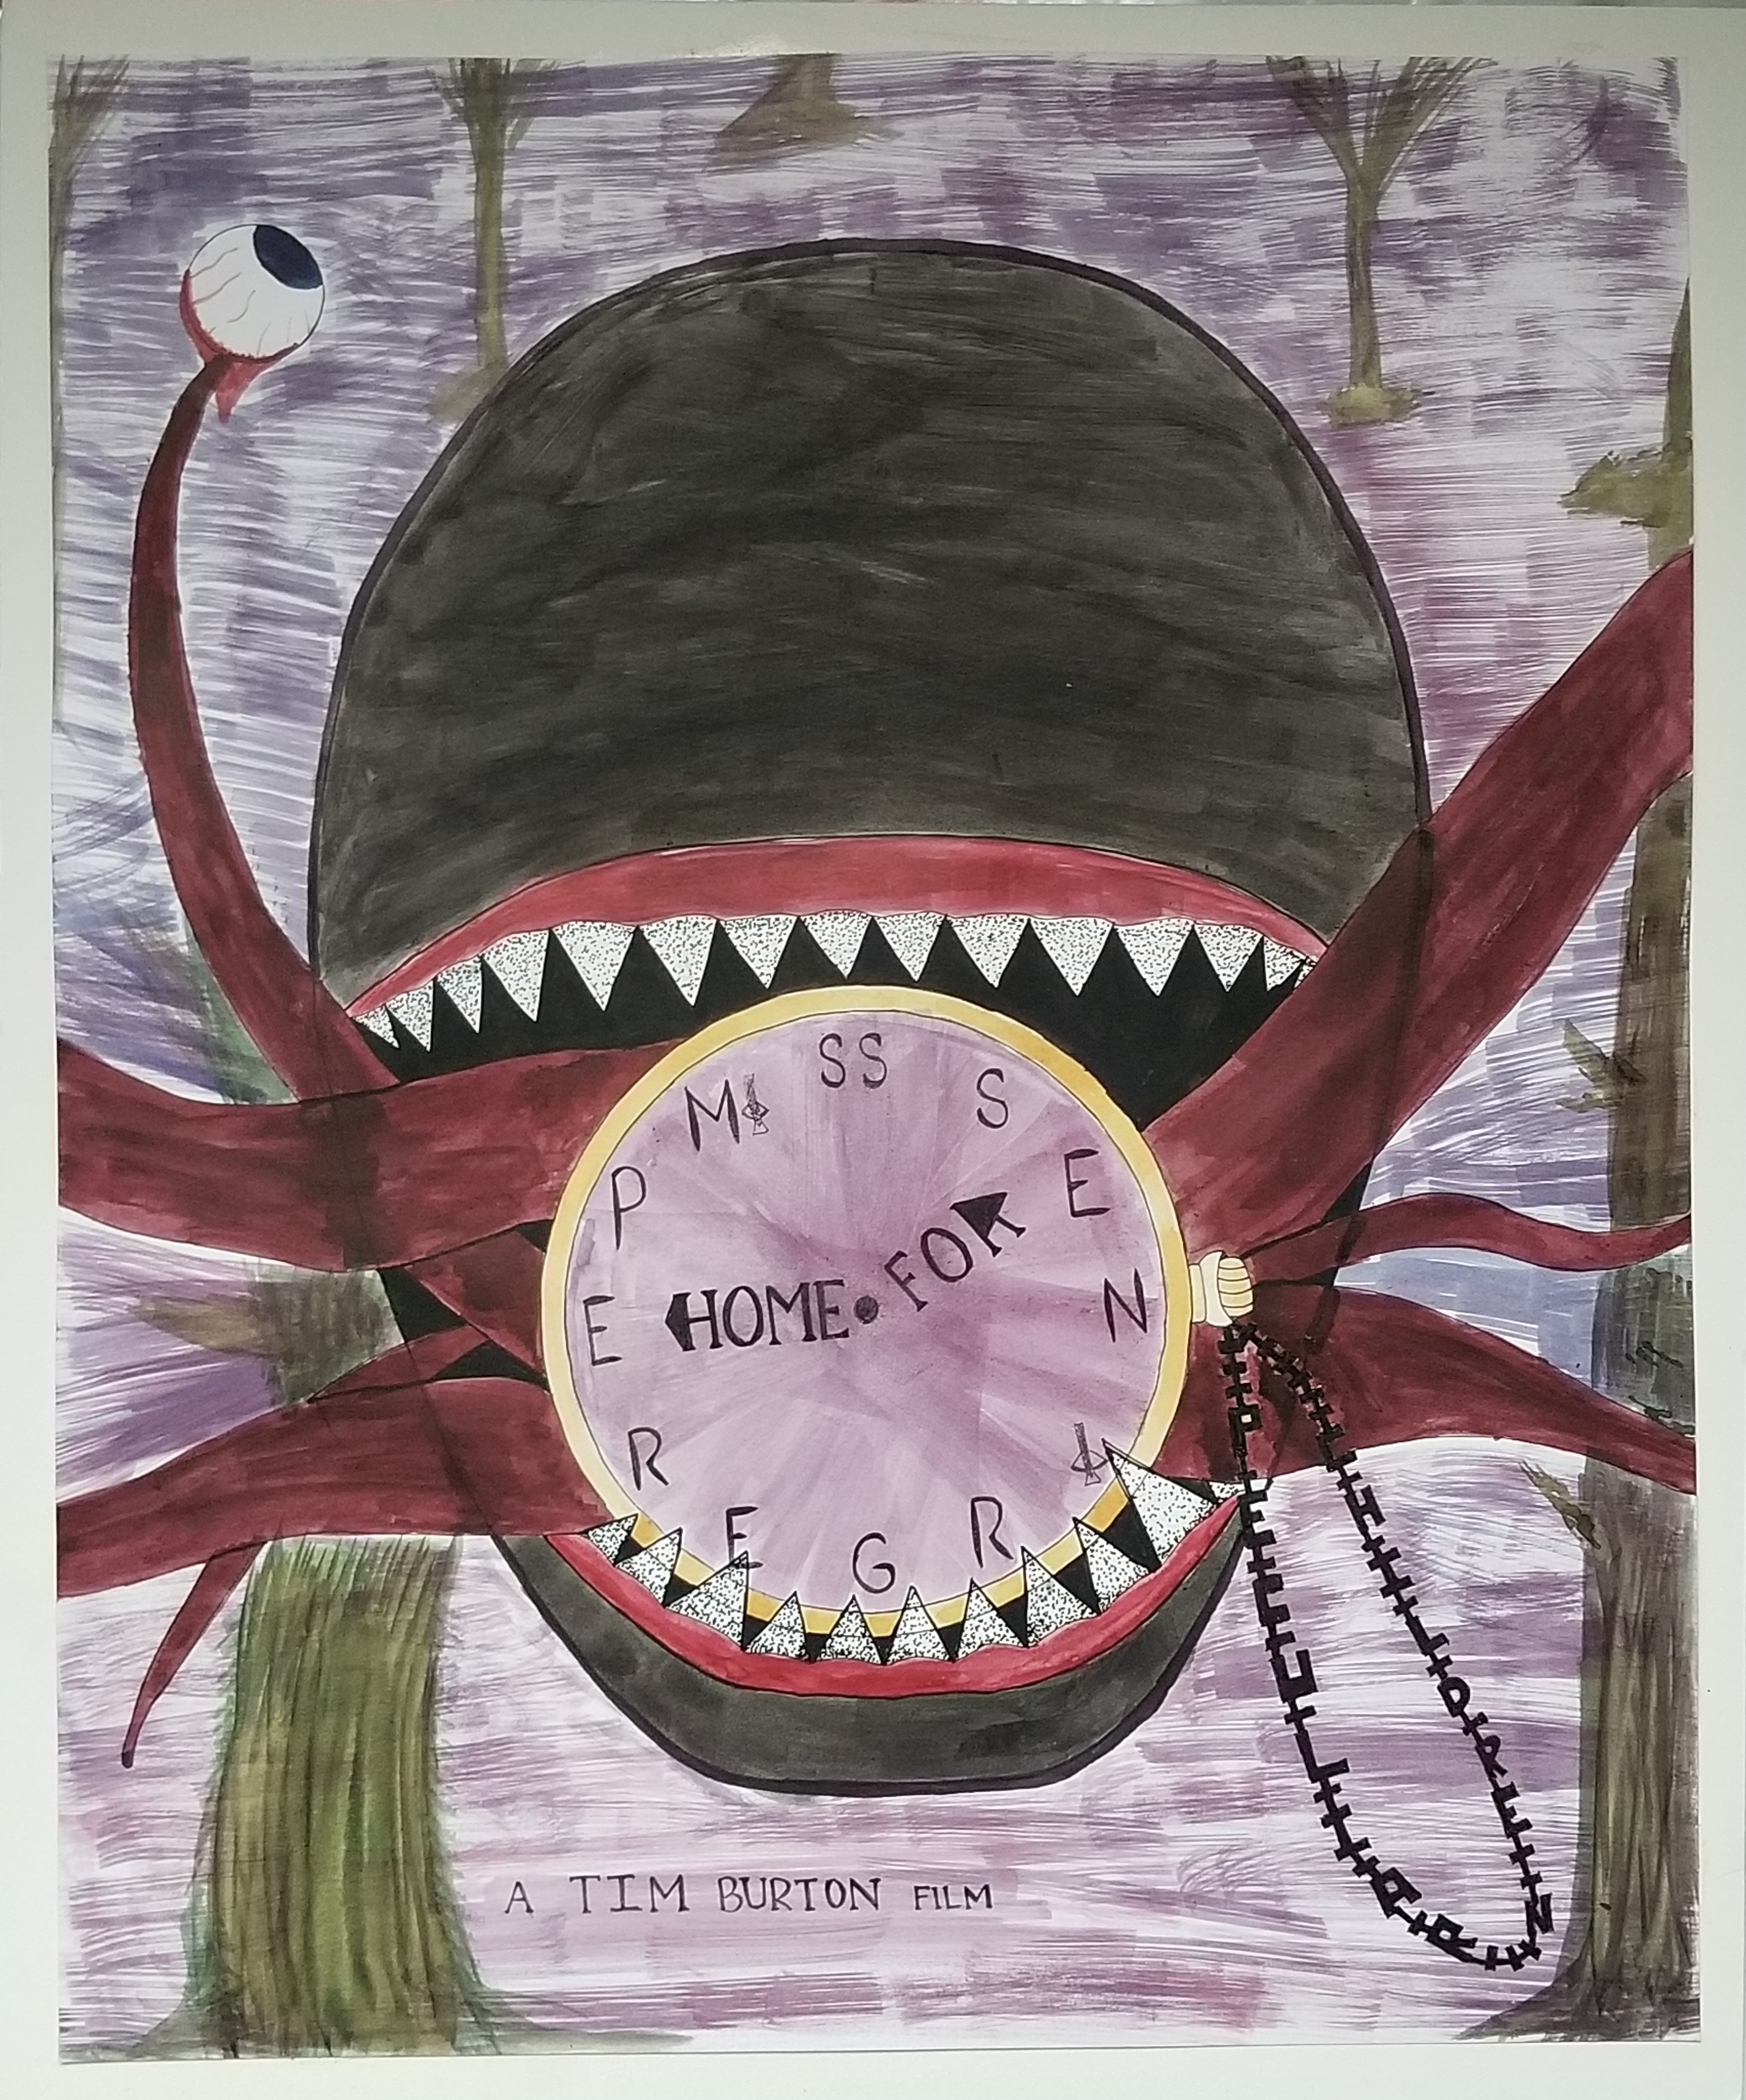 MISS
PEREGRINES
HOME FOR
PECULIAR
CHILDREN
A TIM BURTON FILM